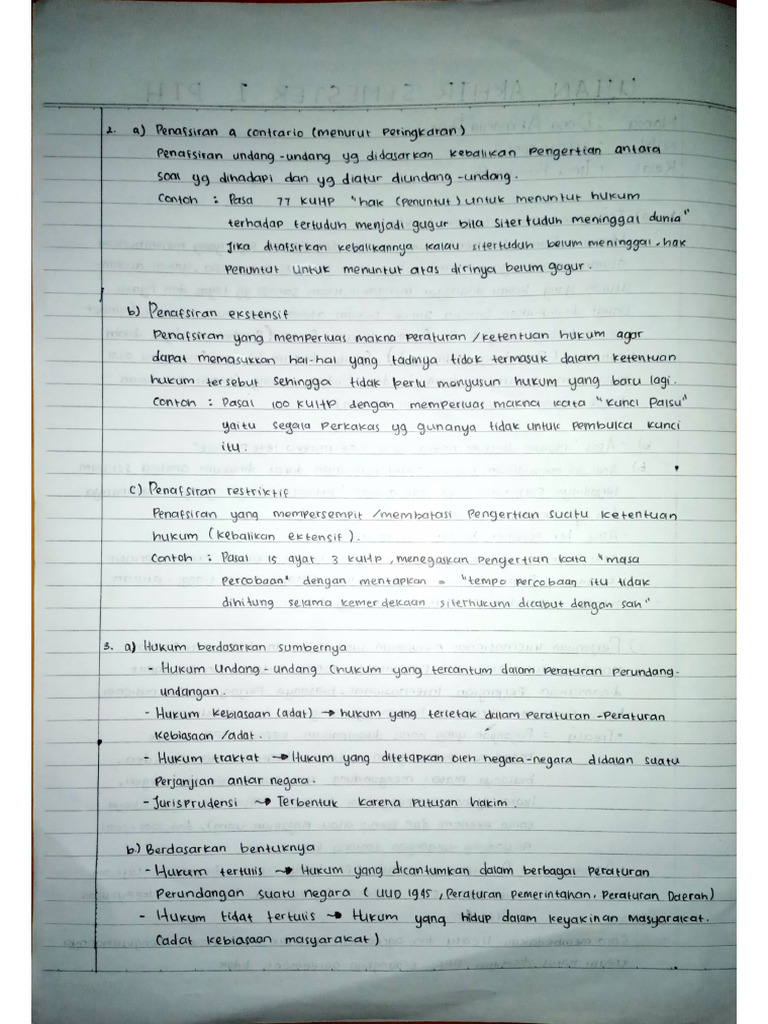 2. a) Penafsiran a contrario (menurut Peringkaran)
Penafsiran undang-undang yg didasarkan kebalikan Pengertian antara
soal yg dihadapi dan yg diatur diundang-undang.
Contoh : Pasa 77 KUHP "hak (Penuntut) untuk menuntut hukum
terhadap tertuduh menjadi gugur bila sitertuduh meninggal dunia"
Jika ditafsirkan kebalikannya kalau sitertuduh belum meninggal, hak
Penuntut untuk menuntut atas dirinya belum gugur.
b) Penafsiran ekstensif
Penafsiran yang memperluas makna peraturan/ketentuan hukum agar
dapat memasukkan hal-hal yang tadinya tidak termasuk dalam ketentuan
hukum tersebut sehingga tidak perlu menyusun hukum yang baru lagi.
Contoh : Pasal 100 KUHP dengan memperluas makna kata "kunci Palsu"
yaitu segala perkakas yg gunanya tidak untuk pembuka kunci
itu.
c) Penafsiran restriktif
Penafsiran yang mempersempit/membatasi Pengertian suatu ketentuan
hukum (kebalikan ektensif).
Contoh : Pasal 15 ayat 3 KUHP, menegaskan Pengertian kata "masa
percobaan" dengan mentapkan = "tempo percobaan itu tidak
dihitung selama kemerdekaan siterhukum dicabut dengan sah"
3. a) Hukum berdasarkan sumbernya
- Hukum Undang-undang (hukum yang tercantum dalam peraturan perundang-
undangan.
- Hukum kebiasaan (adat) → hukum yang terletak dalam Peraturan-Peraturan
kebiasaan/adat.
- Hukum traktat → Hukum yang ditetapkan oleh negara-negara didalan suatu
Perjanjian antar negara.
- Jurisprudensi → Terbentuk karena putusan hakim.
b.) Berdasarkan bentuknya
- Hukum tertulis → Hukum yang dicantumkan dalam berbagai Peraturan
Perundangan suatu negara (UUD 1945, Peraturan pemerintahan, Peraturan Daerah)
- Hukum tidat tertulis → Hukum yang hidup dalam keyakinan masyarakat.
(adat kebiasaan masyarakat)